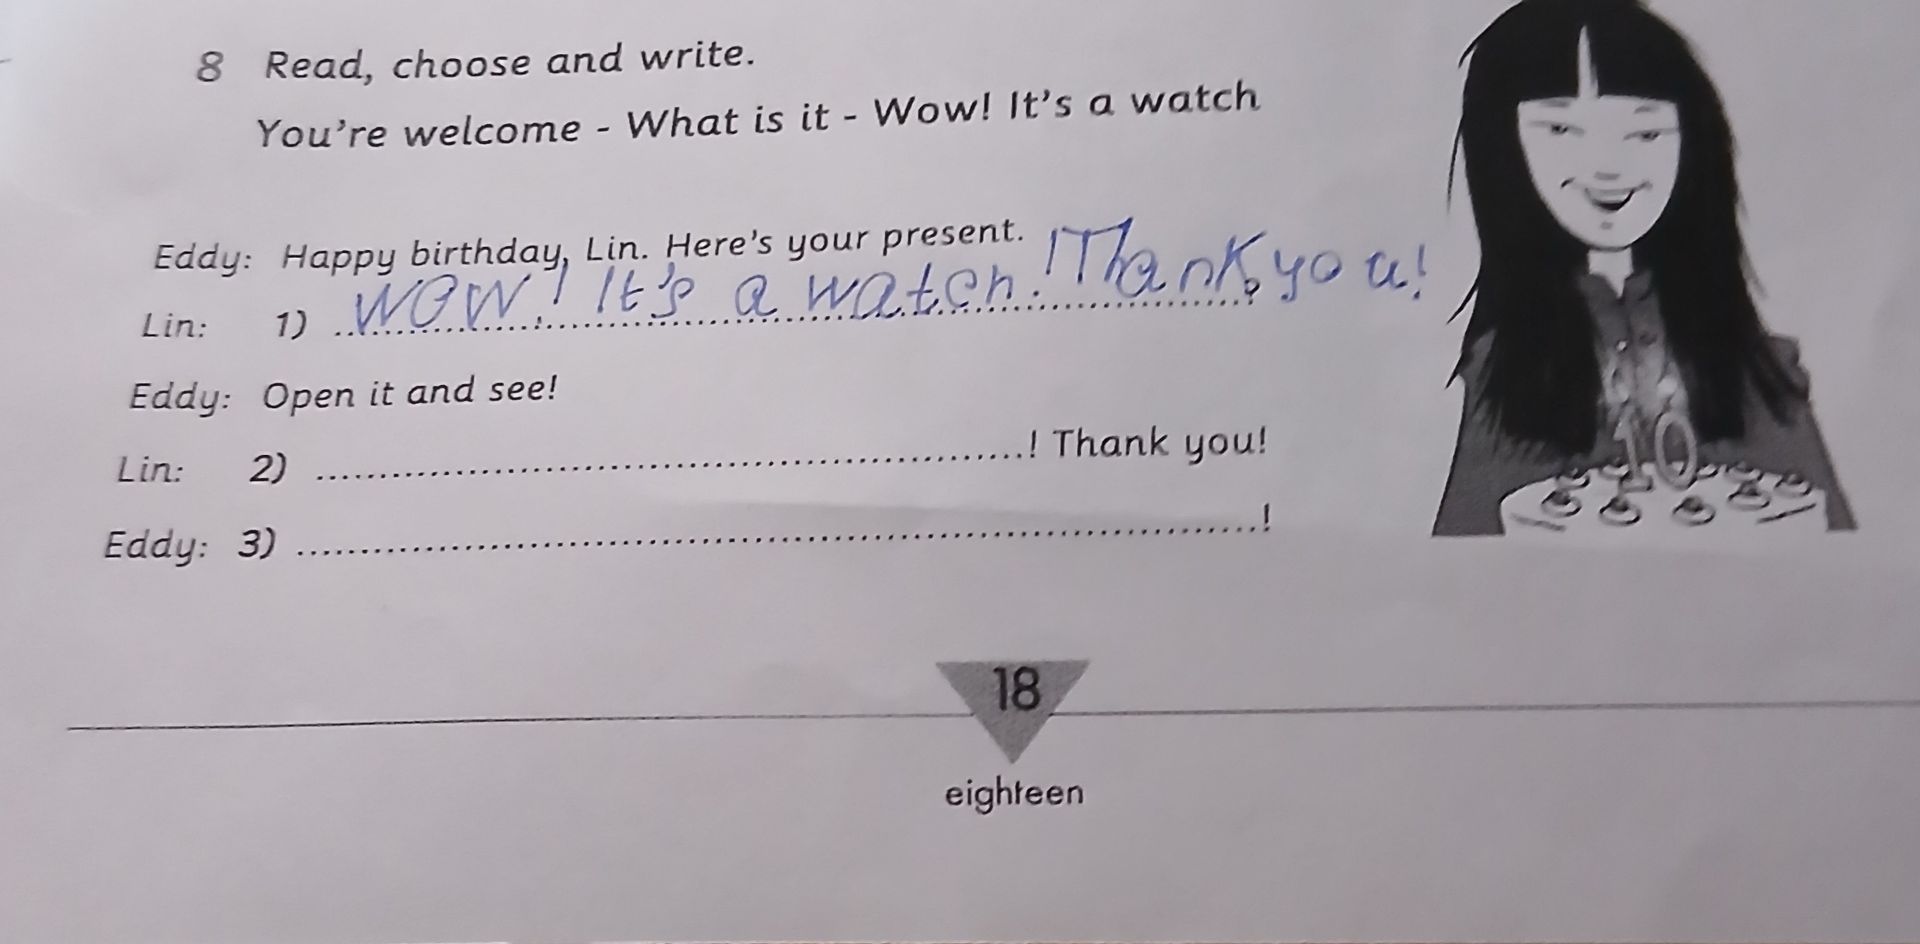 8 Read, choose and write.
You're welcome - What is it - Wow! It's a watch
Eddy: Happy birthday, Lin. Here's your present.
Lin: 1) Wow! It's a watch! Thank you!
Eddy: Open it and see!
Lin: 2) ......................................................! Thank you!
Eddy: 3) ..........................................................................!
10
18
eighteen